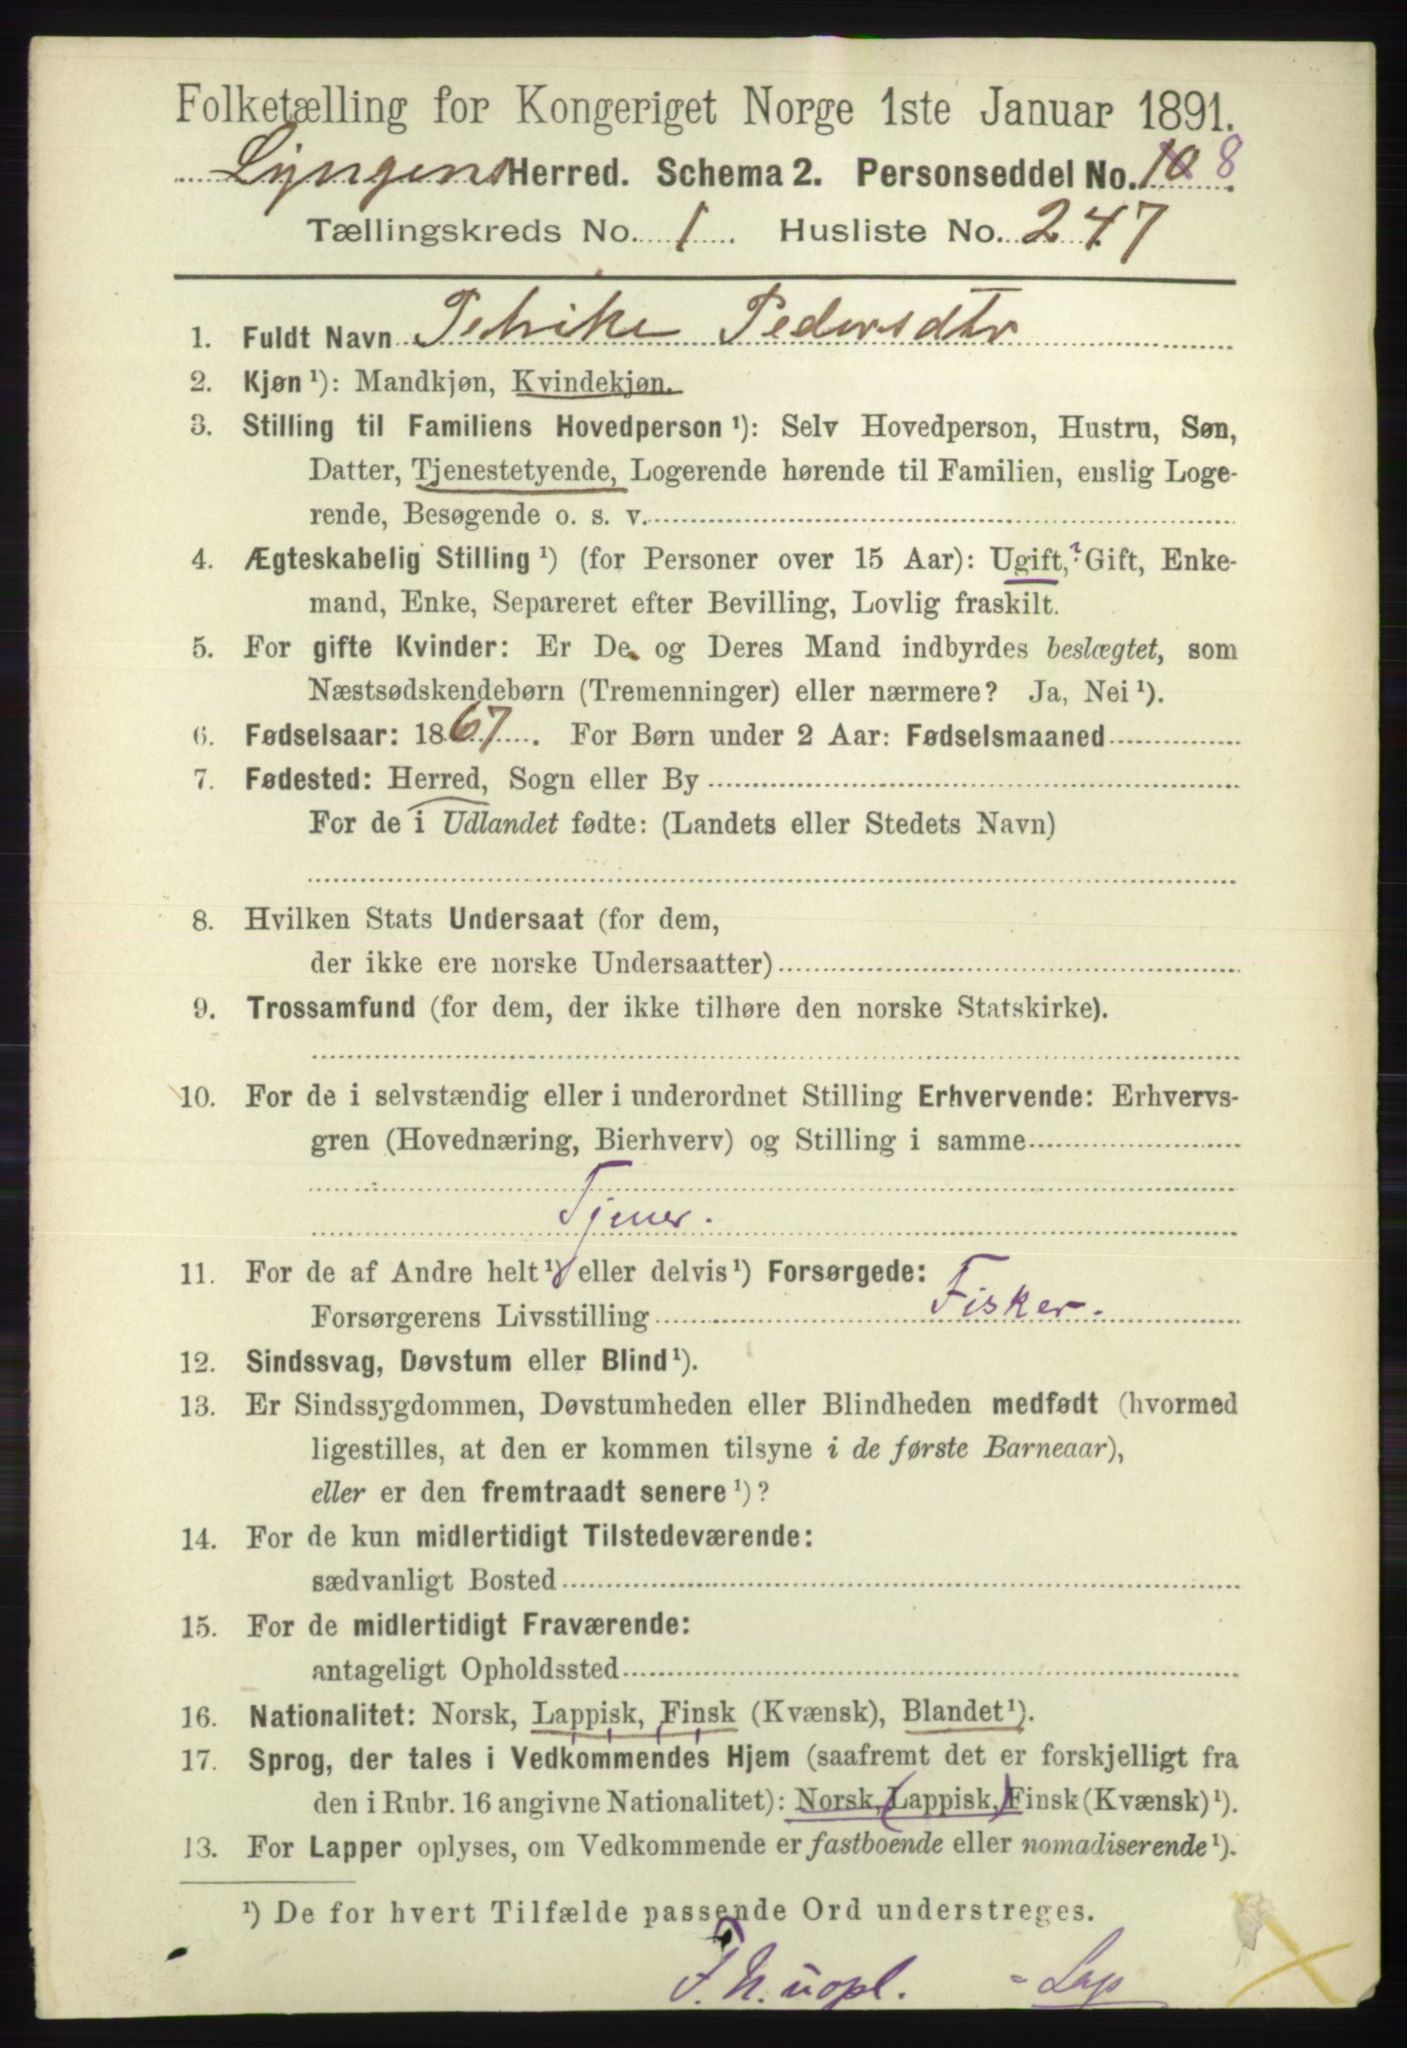 Folketælling for Kongeriget Norge 1ste Januar 1891.
Lyngens Herred. Schema 2. Personseddel No. 10 8
Tællingskreds No. 1 Husliste No. 247
1. Fuldt Navn Petrike Pedersdtr
2. Kjøn ¹): Mandkjøn, Kvindekjøn.
3. Stilling til Familiens Hovedperson ¹): Selv Hovedperson, Hustru, Søn,
Datter, Tjenestetyende, Logerende hørende til Familien, enslig Loge-
rende, Besøgende o. s. v.
4. Ægteskabelig Stilling ¹) (for Personer over 15 Aar): Ugift,? Gift, Enke-
mand, Enke, Separeret efter Bevilling, Lovlig fraskilt.
5. For gifte Kvinder: Er De og Deres Mand indbyrdes beslægtet, som
Næstsødskendebørn (Tremenninger) eller nærmere? Ja, Nei ¹).
6. Fødselsaar: 1867. For Børn under 2 Aar: Fødselsmaaned
7. Fødested: Herred, Sogn eller By
For de i Udlandet fødte: (Landets eller Stedets Navn)
8. Hvilken Stats Undersaat (for dem,
der ikke ere norske Undersaatter)
9. Trossamfund (for dem, der ikke tilhøre den norske Statskirke).
10. For de i selvstændig eller i underordnet Stilling Erhvervende: Erhvervs-
gren (Hovednæring, Bierhverv) og Stilling i samme
Tjener.
11. For de af Andre helt ¹) eller delvis ¹) Forsørgede:
Forsørgerens Livsstilling Fisker.
12. Sindssvag, Døvstum eller Blind ¹).
13. Er Sindssygdommen, Døvstumheden eller Blindheden medfødt (hvormed
ligestilles, at den er kommen tilsyne i de første Barneaar),
eller er den fremtraadt senere ¹)?
14. For de kun midlertidigt Tilstedeværende:
sædvanligt Bosted
15. For de midlertidigt Fraværende:
antageligt Opholdssted
16. Nationalitet: Norsk, Lappisk, Finsk (Kvænsk), Blandet ¹).
17. Sprog, der tales i Vedkommendes Hjem (saafremt det er forskjelligt fra
den i Rubr. 16 angivne Nationalitet): Norsk, (Lappisk,) Finsk (Kvænsk) ¹).
13. For Lapper oplyses, om Vedkommende er fastboende eller nomadiserende ¹).
¹) De for hvert Tilfælde passende Ord understreges.
F. N. uopl. = Lap